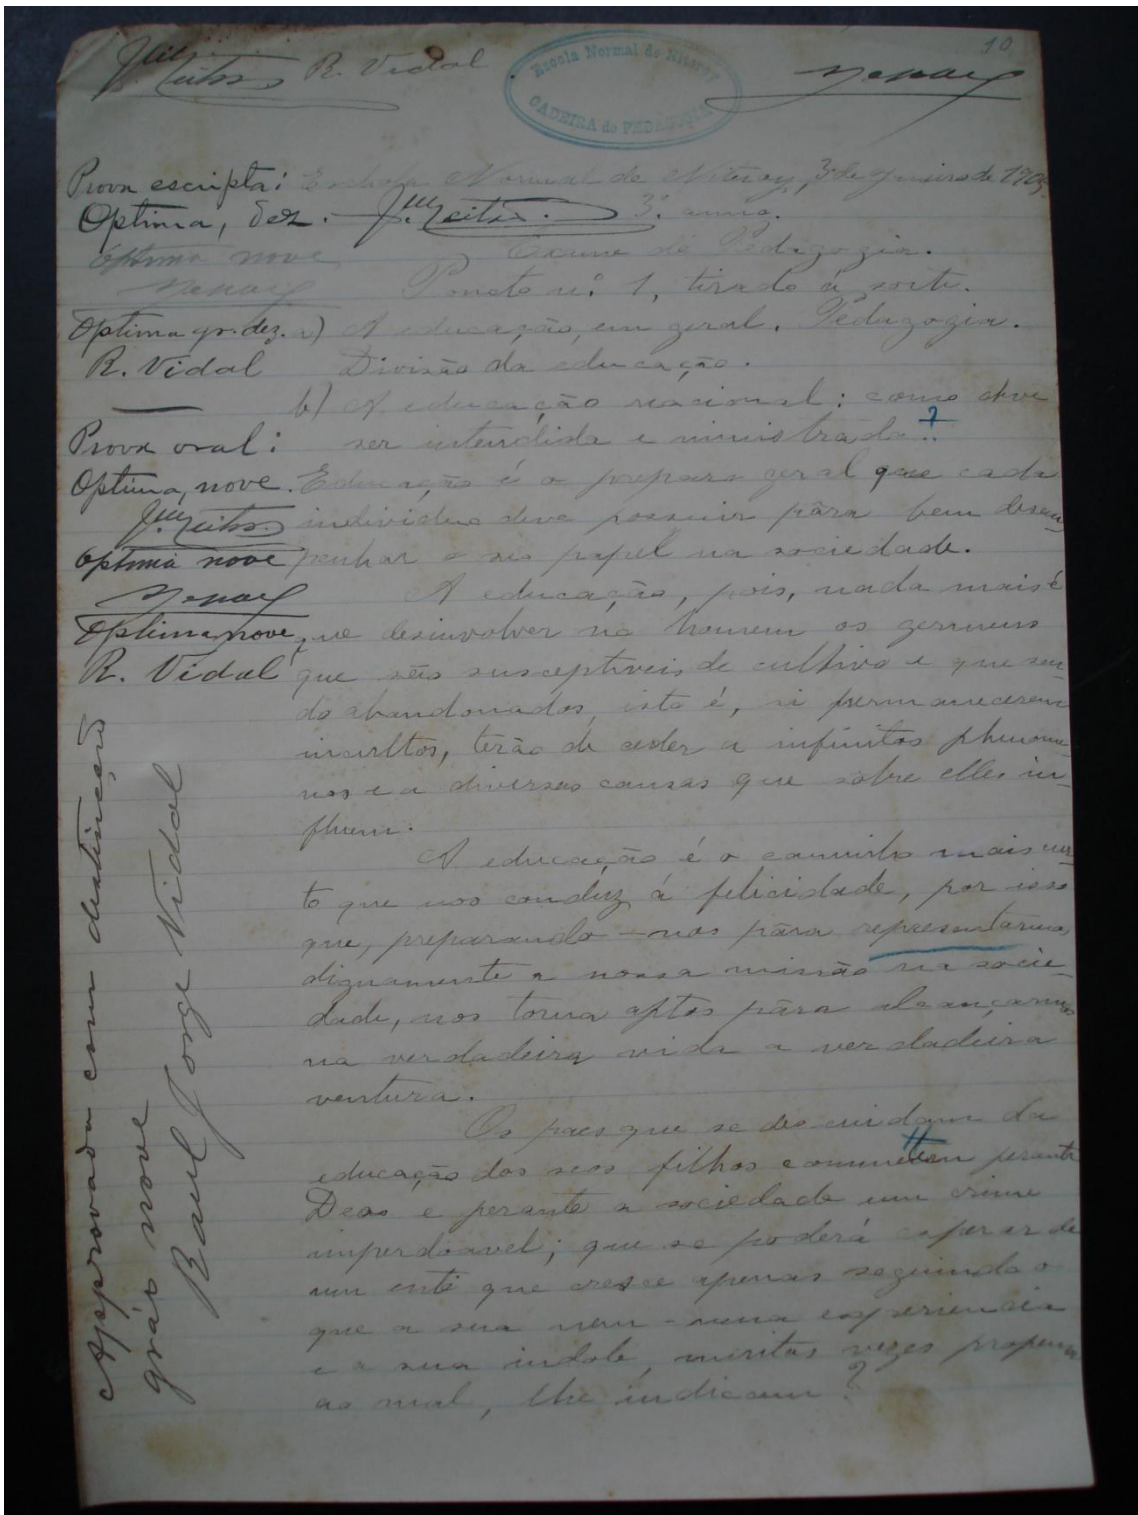 R. Vidal
Escola Normal de Niteroy
CADEIRA de PEDAGOGIA
10
Prova escripta:
Optima, dez.
Optima nove
Optima gr. dez.
R. Vidal
Prova oral:
Optima, nove.
Optima nove
Optima, nove
R. Vidal
Approvada com distincção
gráo nove
Raul Jorge Vidal
Eschola Normal de Niteroy, 3 de de 190
3º anno.
Exame de Pedagogia.
Poncto n.º 1, tirado á sorte.
a) A educação, em geral. Pedagogia.
Divisão da educação.
b) A educação nacional: como deve
ser intendida e ministrada?
Educação é o preparo geral que cada
individuo deve possuir pàra bem desem-
penhar o seo papel na sociedade.
A educação, pois, nada mais é
que desinvolver no homem os germens
que são susceptiveis de cultivo e que sen-
do abandonados, isto é, si permanecerem
incultos, terão de ceder a infinitos phenome-
nos e a diversas causas que sobre elles in-
fluem.
A educação é o caminho mais cer-
to que nos conduz á felicidade, por isso
que, preparando-nos pàra representarmos
dignamente a nossa missão na socie-
dade, nos torna aptos pàra alcançarmos
na verdadeira vida a verdadeira
ventura.
Os paes que se descuidam da
educação dos seos filhos commettem perante
Deos e perante a sociedade um crime
imperdoavel; que se poderá esperar de
um ente que cresce apenas seguindo o
que a sua nem-uma experiencia
e a sua indole, muitas vezes propensa
ao mal, lhe indicam?